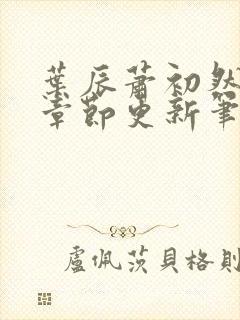 葉辰蕭初然
章節更新筆
盧佩茨貝格則